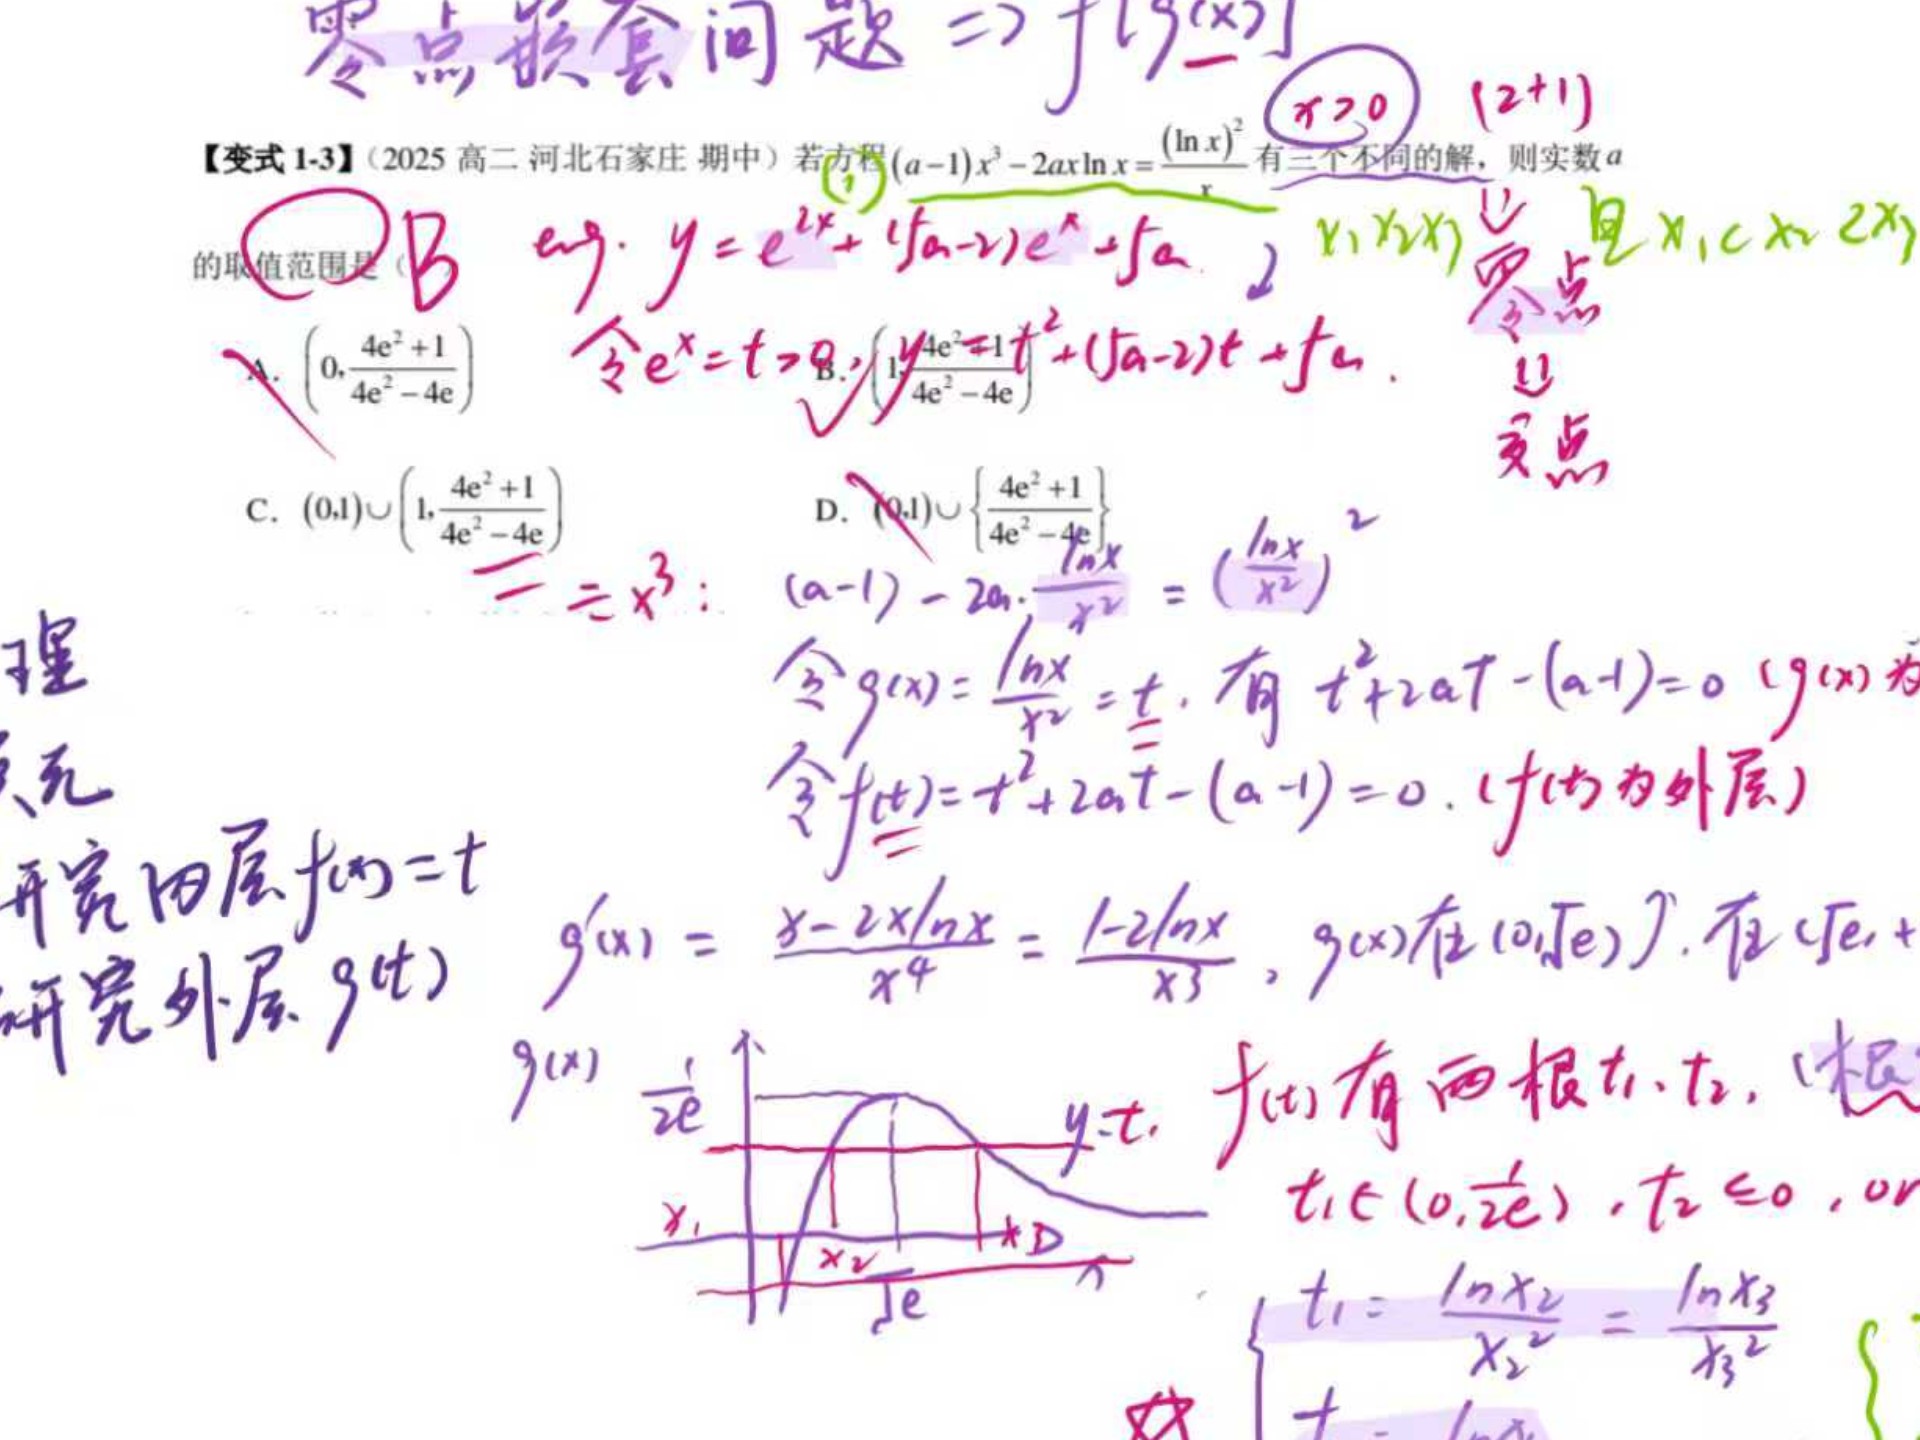 零点嵌套问题 => f[g(x)]
x>0 (2+1)
【变式 1-3】（2025 高二 河北石家庄 期中）若方程(a−1)x³−2ax ln x=(ln x)²/x 有三个不同的解，则实数a
(1)
的取值范围是（
B eg. y=e^{2x}+(5a-2)e^x+5a
x₁x₂x₃
且x₁<x₂<x₃
零点
A. (0, (4e²+1)/(4e²−4e))
令e^x=t>0, y=t²+(5a-2)t+5a.
B. (1, (4e²+1)/(4e²−4e))
交点
C. (0,1)∪(1, (4e²+1)/(4e²−4e))
D. (0,1)∪{(4e²+1)/(4e²−4e)}
÷x³: (a-1)-2a·lnx/x² = (lnx/x²)²
令g(x)=lnx/x²=t. 有 t²+2at-(a-1)=0 (g(x)为
令f(t)=t²+2at-(a-1)=0. (f(t)为外层)
理
元
研究内层f(x)=t
研究外层g(t)
g'(x) = (x-2xlnx)/x⁴ = (1-2lnx)/x³, g(x)在(0,√e)↗. 在(√e,+
g(x)
1/2e
y=t.
x₁
x₂
√e
f(t)有两根t₁、t₂, (根
t₁∈(0,1/2e), t₂≤0, or
t₁= lnx₂/x₂² = lnx₃/x₃²